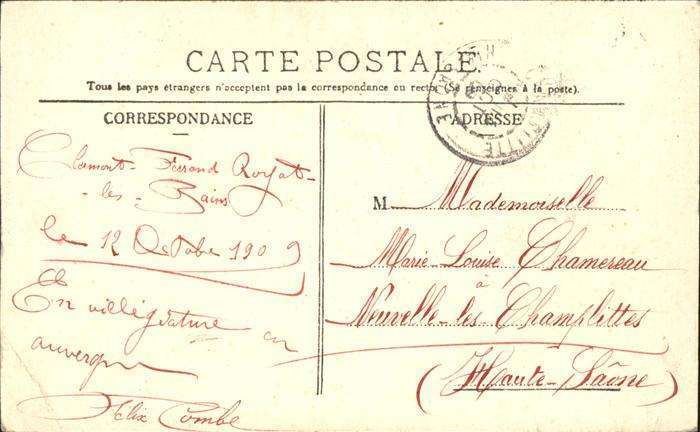 CARTE POSTALE
Tous les pays étrangers n'acceptent pas la correspondance au recto. (Se renseignes à la poste).
CORRESPONDANCE
Clermont-Ferrand Royat-
-les-Bains
le 12 Octobre 1909
En villégiature en
auvergne
Felix Combe
ADRESSE
M Mademoiselle
Marie-Louise Chamereau
à
Neuvelle-les-Champlittes
(Haute-Saône)